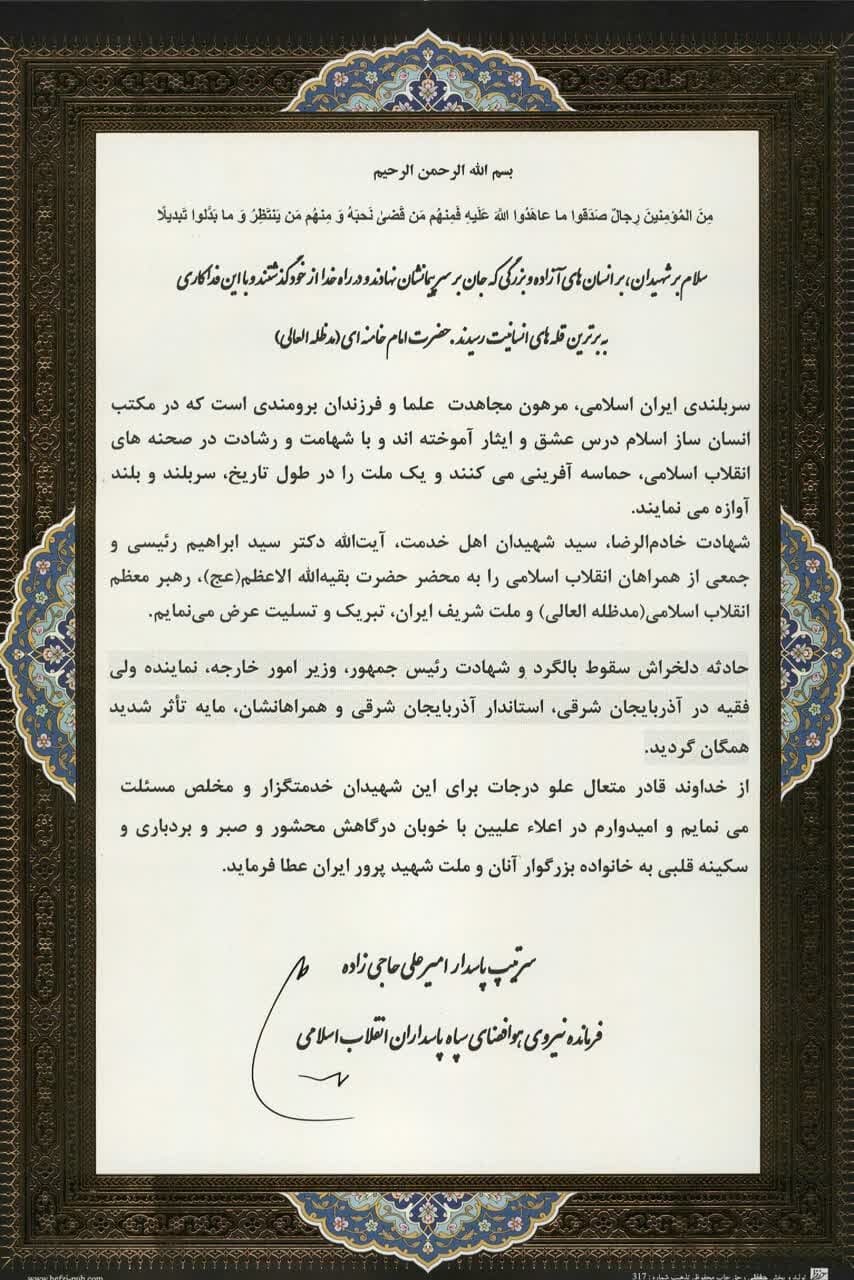 بسم الله الرحمن الرحیم
مِنَ المُؤمِنینَ رِجالٌ صَدَقوا ما عاهَدُوا اللهَ عَلَیهِ فَمِنهُم مَن قَضیٰ نَحبَهُ وَ مِنهُم مَن یَنتَظِرُ وَ ما بَدَّلوا تَبدیلًا
سلام بر شهیدان، بر انسان های آزاده و بزرگی که جان بر سر پیمانشان نهادند و در راه خدا از خود گذشتند و با این فداکاری
به برترین قله های انسانیت رسیدند. حضرت امام خامنه ای (مدظله العالی)
سربلندی ایران اسلامی، مرهون مجاهدت علما و فرزندان برومندی است که در مکتب
انسان ساز اسلام درس عشق و ایثار آموخته اند و با شهامت و رشادت در صحنه های
انقلاب اسلامی، حماسه آفرینی می کنند و یک ملت را در طول تاریخ، سربلند و بلند
آوازه می نمایند.
شهادت خادم‌الرضا، سید شهیدان اهل خدمت، آیت‌الله دکتر سید ابراهیم رئیسی و
جمعی از همراهان انقلاب اسلامی را به محضر حضرت بقیه‌الله الاعظم(عج)، رهبر معظم
انقلاب اسلامی(مدظله العالی) و ملت شریف ایران، تبریک و تسلیت عرض می‌نمایم.
حادثه دلخراش سقوط بالگرد و شهادت رئیس جمهور، وزیر امور خارجه، نماینده ولی
فقیه در آذربایجان شرقی، استاندار آذربایجان شرقی و همراهانشان، مایه تأثر شدید
همگان گردید.
از خداوند قادر متعال علو درجات برای این شهیدان خدمتگزار و مخلص مسئلت
می نمایم و امیدوارم در اعلاء علیین با خوبان درگاهش محشور و صبر و بردباری و
سکینه قلبی به خانواده بزرگوار آنان و ملت شهید پرور ایران عطا فرماید.
سرتیپ پاسدار امیرعلی حاجی زاده
فرمانده نیروی هوافضای سپاه پاسداران انقلاب اسلامی